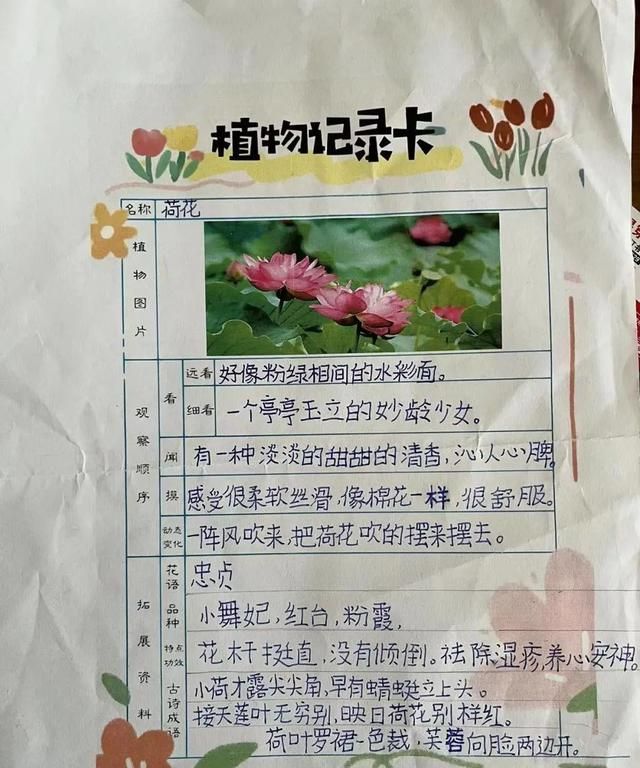 植物记录卡
名称 荷花
植物图片
观察顺序 看 远看 好像粉绿相间的水彩面。
细看 一个亭亭玉立的妙龄少女。
闻 有一种淡淡的甜甜的清香,沁人心脾。
摸 感受很柔软丝滑,像棉花一样,很舒服。
动态变化 一阵风吹来,把荷花吹的摆来摆去。
拓展资料 花语 忠贞
品种 小舞妃,红台,粉霞,
特点功效 花杆挺直,没有倾倒。祛除湿疹,养心安神。
古诗成语 小荷才露尖尖角,早有蜻蜓立上头。
接天莲叶无穷别,映日荷花别样红。
荷叶罗裙一色裁,芙蓉向脸两边开。